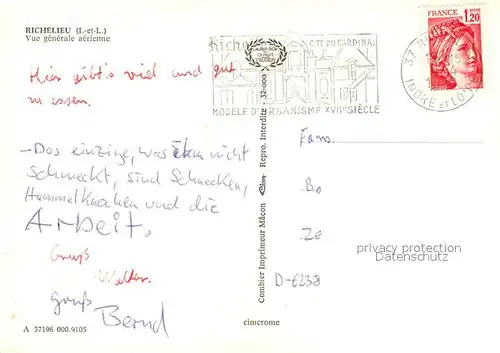 RICHELIEU (I.-et-L.)
Vue générale aérienne
Hier gibt's viel und gut
zu essen.
-Das einzige, was ihm nicht
Schmeckt, sind Schnecken,
Hammelknochen und die
Arbeit.
Gruß
Walter.
Gruß
Bernd
A 37196 000.9105
Combier Imprimeur Mâcon
Repro. Interdite - 32-000
cimcrome
Riche CITE DU CARDINAL
MODELE D'URBANISME XVIIe SIÈCLE
37
INDRE et LO
FRANCE
1,20
Fam.
Bo
Ze
D-6238
privacy protection
Datenschutz